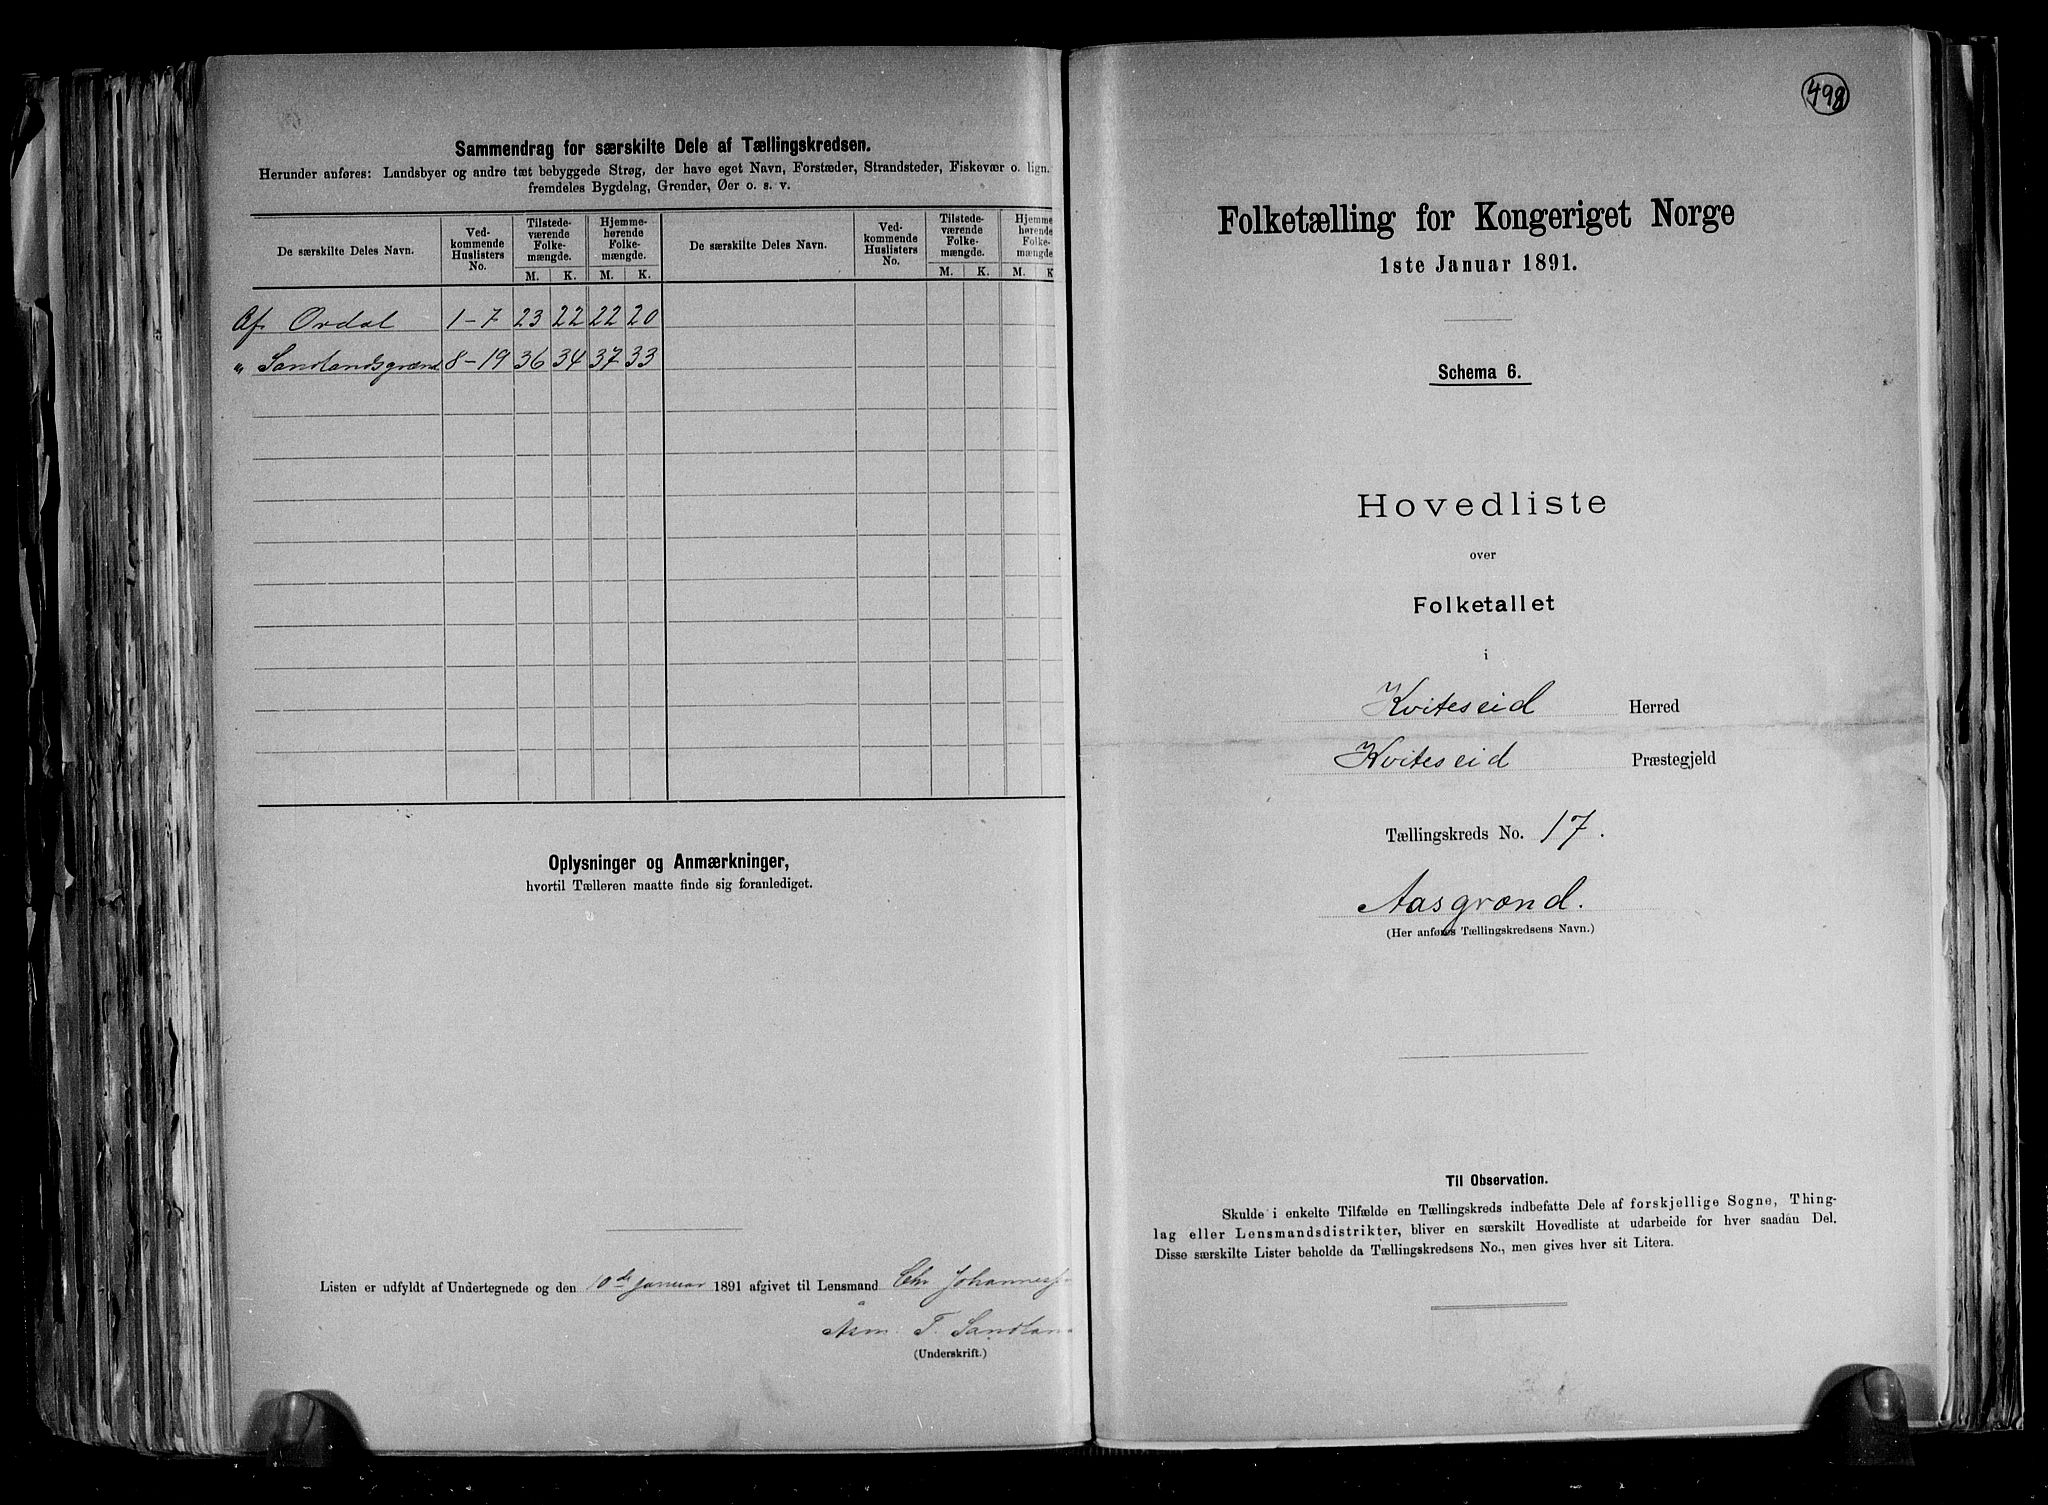 Sammendrag for særskilte Dele af Tællingskredsen.
Herunder anføres: Landsbyer og andre tæt bebyggede Strøg, der have eget Navn, Forstæder, Strandsteder, Fiskevær o. lign.
fremdeles Bygdelag, Grender, Øer o. s. v.
De særskilte Deles Navn. Ved-kommende Huslisters No. Tilstede-værende Folke-mængde. Hjemme-hørende Folke-mængde. De særskilte Deles Navn. Ved-kommende Huslisters No. Tilstede-værende Folke-mængde. Hjemme hørende Folke- mængde
M. K. M. K. M. K. M. K
Af Ordal 1-7 23 22 22 20
" Sandlandsgrænd 8-19 36 34 37 33
Oplysninger og Anmærkninger,
hvortil Tælleren maatte finde sig foranlediget.
Listen er udfyldt af Undertegnede og den 10de januar 1891 afgivet til Lensmand Chr Johannes
Åsm. T. Sandlan
(Underskrift.)
498
Folketælling for Kongeriget Norge
1ste Januar 1891.
Schema 6.
Hovedliste
over
Folketallet
i
Kviteseid Herred
Kviteseid Præstegjeld
Tællingskreds No. 17.
Aasgrænd.
(Her anføres Tællingskredsens Navn.)
Til Observation.
Skulde i enkelte Tilfælde en Tællingskreds indbefatte Dele af forskjellige Sogne, Thing-
lag eller Lensmandsdistrikter, bliver en særskilt Hovedliste at udarbeide for hver saadan Del.
Disse særskilte Lister beholde da Tællingskredsens No., men gives hver sit Litera.